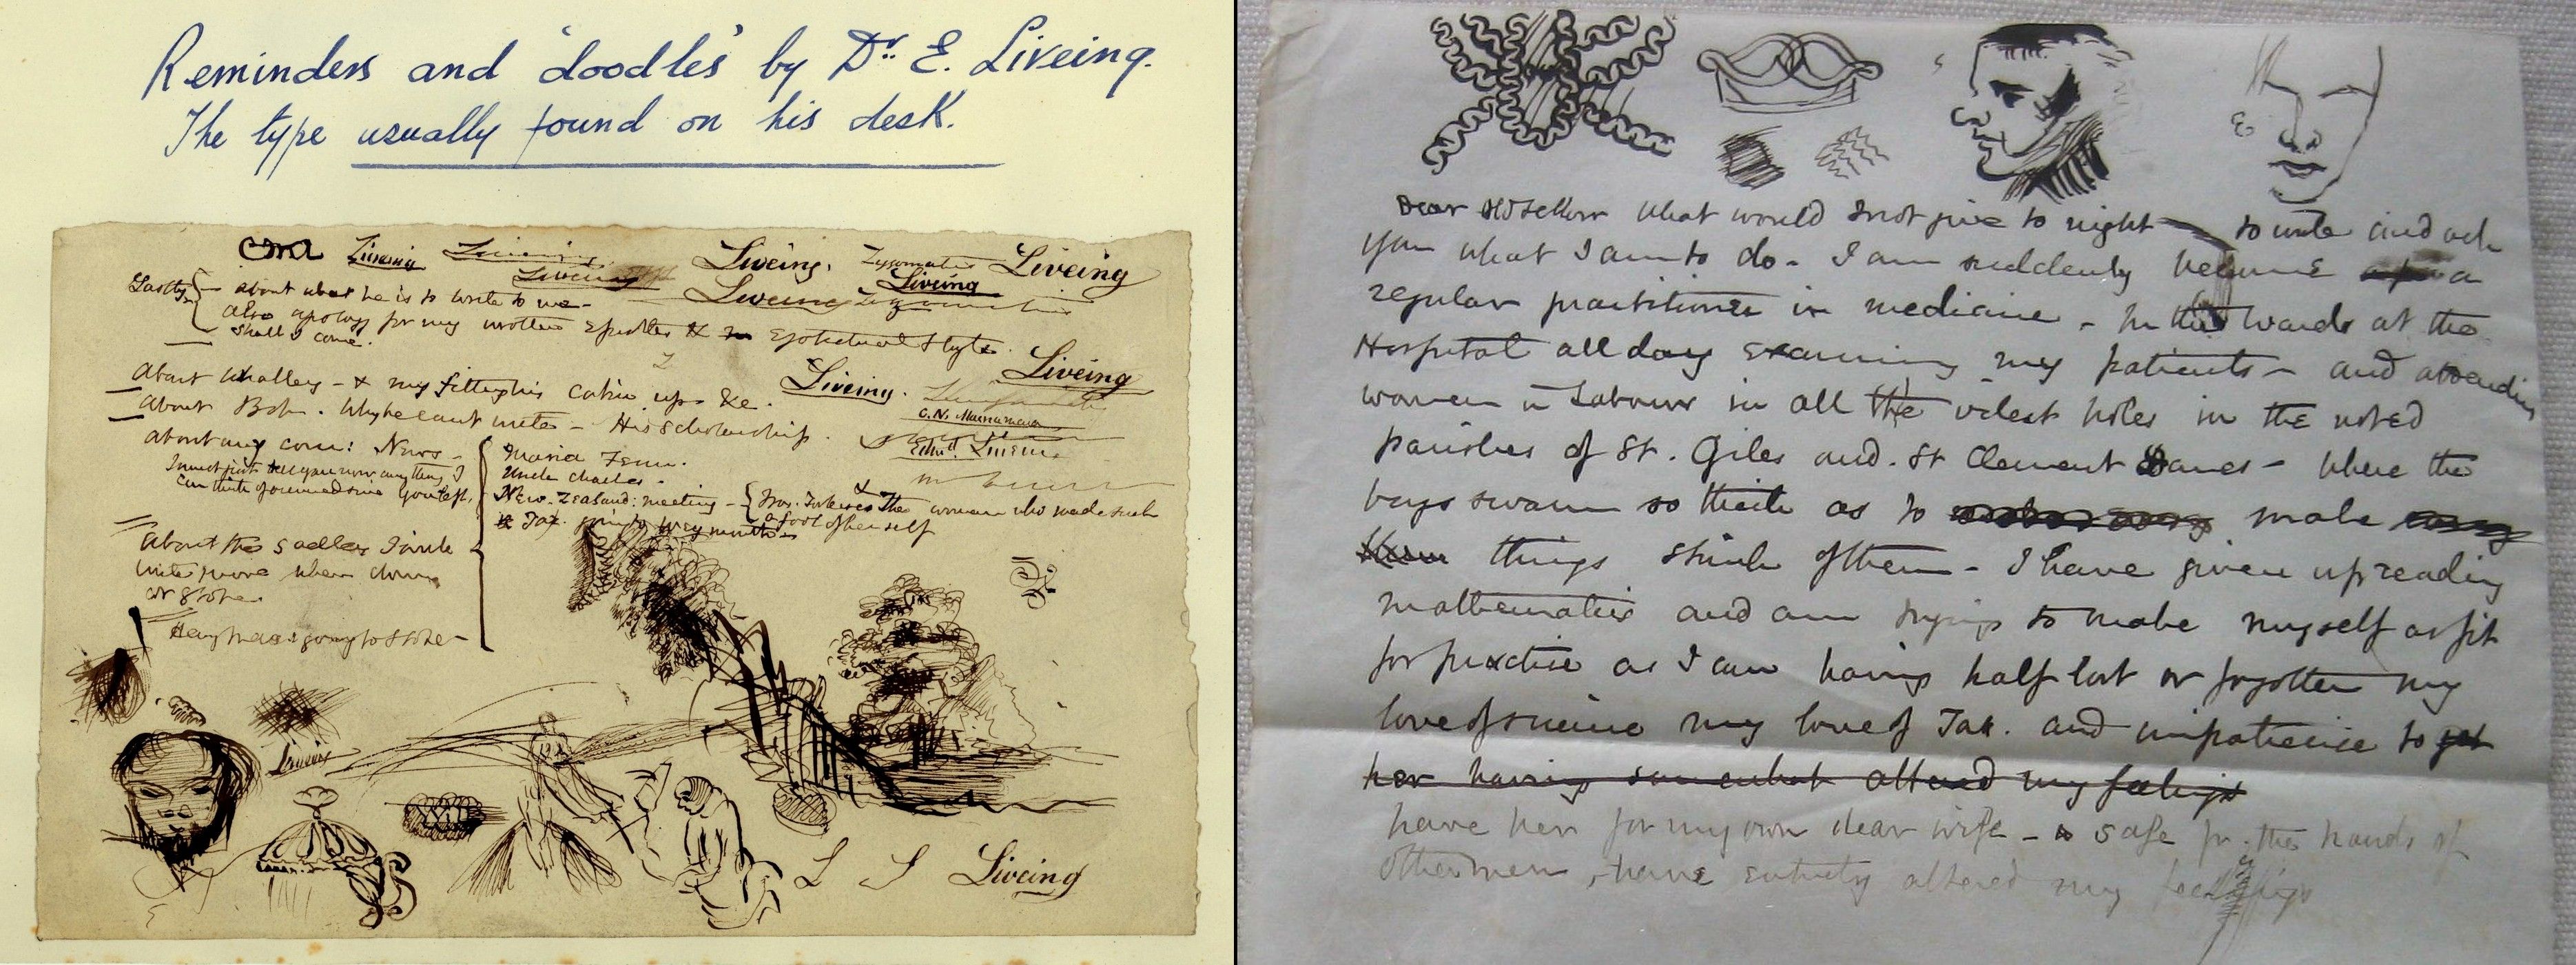 Reminders and 'doodles' by Dr. E. Liveing.
The type usually found on his desk.
Liveing Liveing. Zygomatic Liveing
Liveing Liveing
Lastly about what he is to write to me -
Liveing
also apology for my written epistles & egotistical style.
Shall I come.
Liveing
About Whalley - & my fitting his cabin up &c. Liveing.
About Bob. Why he cant write - His scholarship.
C. N. Macnamara
Edwd. Liveing
About any com: News -
I must just tell you now any thing I
can think of occurred since you left.
Maria Fenn.
Uncle Charles.
New Zealand: meeting - the woman who made such
a fool of herself
is Tax. going to
About the sadler I
write more when down
at Stoke.
going to Stoke -
Liveing
L L Liveing
Dear old fellow what would I not give to night to write and ask
you what I am to do - I am suddenly become a
regular practitioner in medicine - In the wards at the
Hospital all day examining my patients - and attending
women in Labour in all the vilest holes in the noted
parishes of St. Giles and St Clement Danes - where the
bugs swarm so thick as to make
things stink of them - I have given up reading
mathematics and am trying to make myself as fit
for practice as I can having half lost or forgotten my
love of science my love of Tax. and impatience to get
her having somewhat altered my feelings
have her for my own dear wife - safe fr. the hands of
other men, have entirely altered my feelings